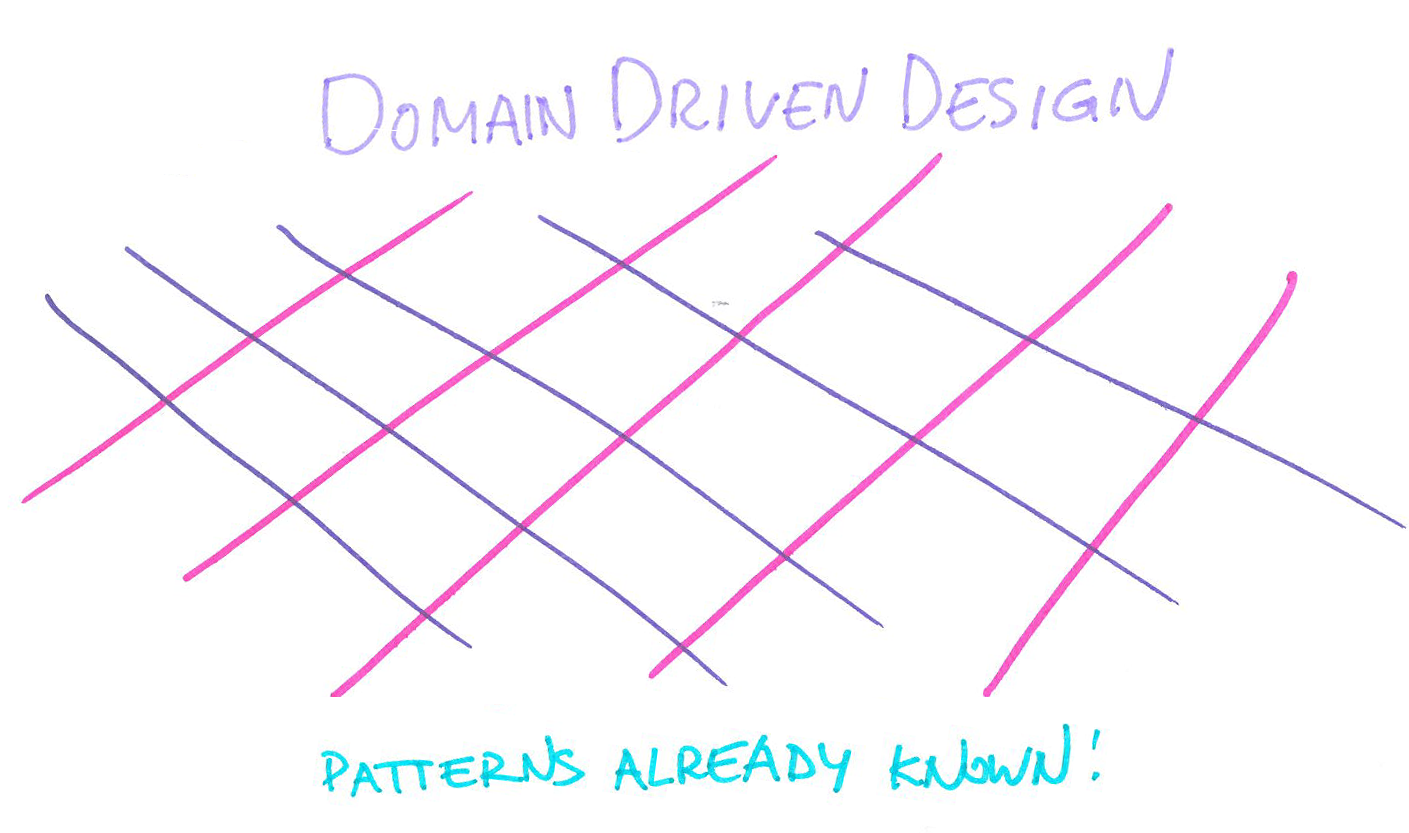 DOMAIN DRIVEN DESIGN
PATTERNS ALREADY KNOWN!